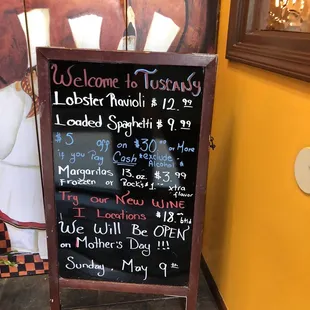 Welcome to TUSCANY
Lobster Ravioli $ 12.99
Loaded Spaghetti $ 9.99
$5 off on $30.00 or More
if you Pay Cash *exclude Alcohol
Margaritas 13.oz $3.99
Frozen or Rocks $1. xtra
flavor
Try our New WINE
I Locations $18.
We Will Be OPEN
on Mother's Day !!!
Sunday, May 9